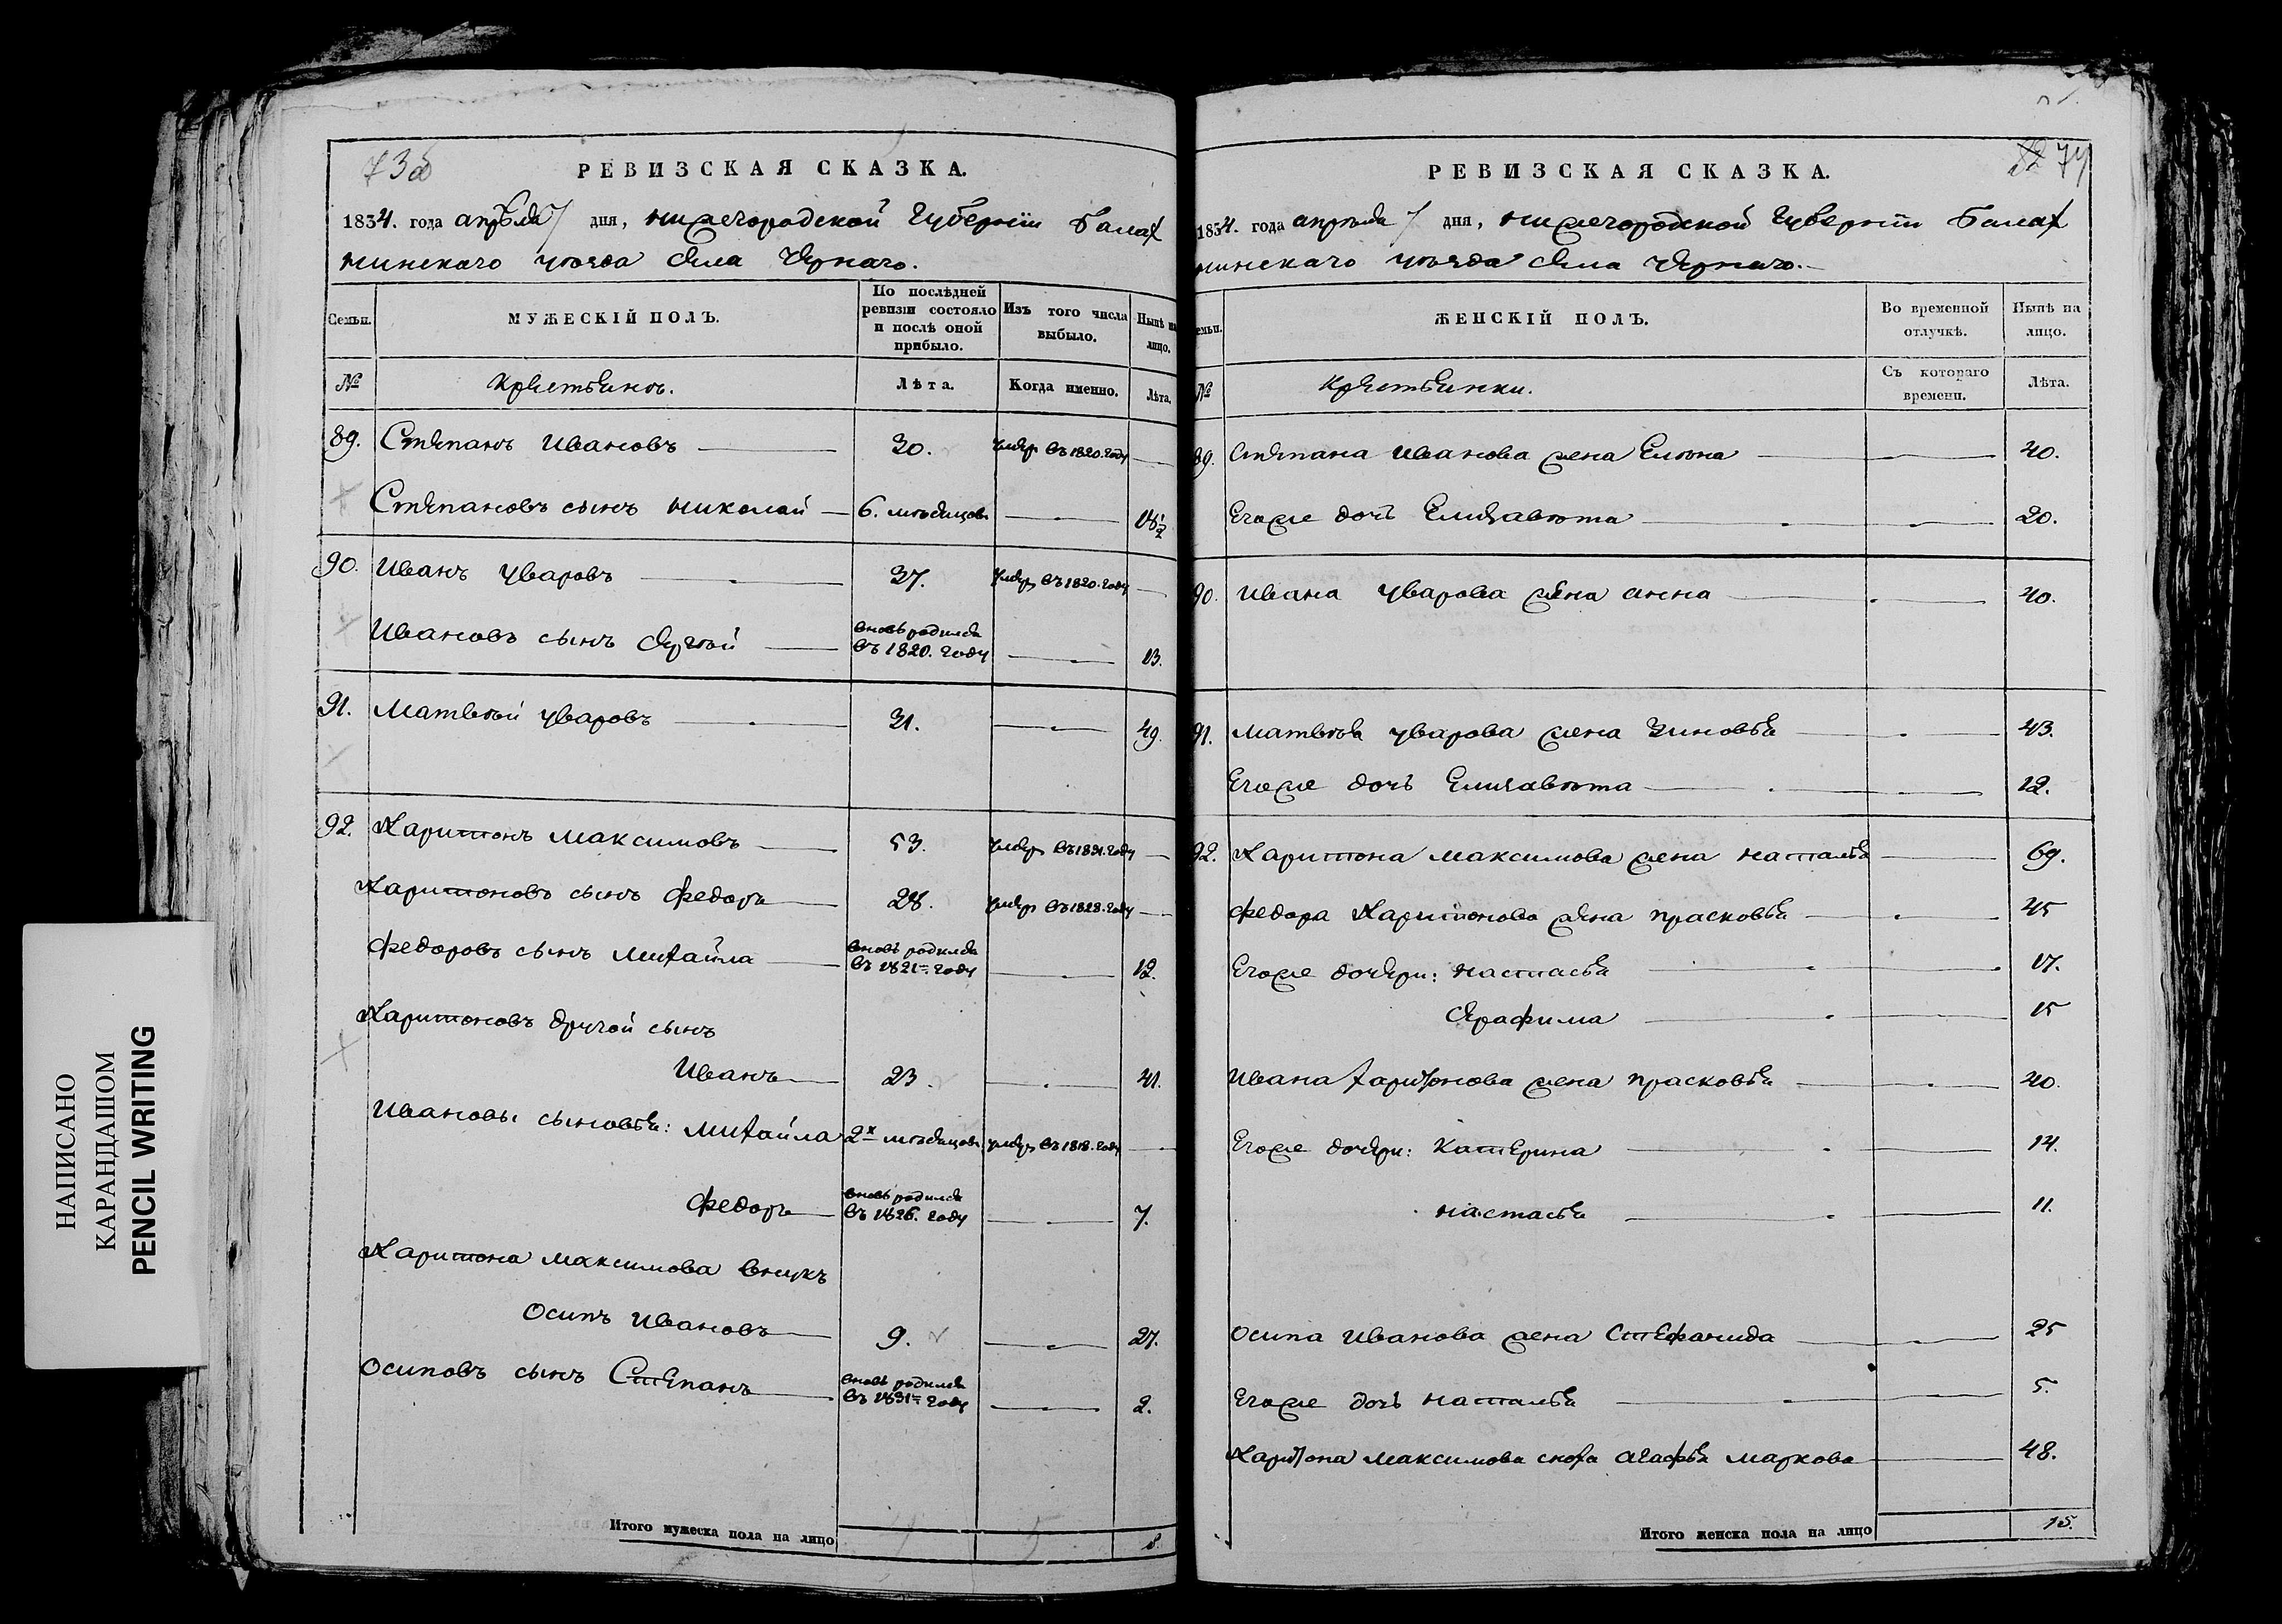 НАПИСАНО
КАРАНДАШОМ
PENCIL WRITING
73об
РЕВИЗСКАЯ СКАЗКА.
1834. года апрѣля 7 дня, нижегородской Губерніи Балах
нинскаго уѣзда села Чернаго.
Семьи.
МУЖЕСКІЙ ПОЛЪ.
По послѣдней ревизіи состояло и послѣ оной прибыло.
Изъ того числа выбыло.
Нынѣ на лицо.
№
Крестьянъ.
Лѣта.
Когда именно.
Лѣта.
89. Степанъ Ивановъ — 30. умеръ въ 1820. году —
Степановъ сынъ Николай — 6. мѣсяцовъ — 18½
90. Иванъ Уваровъ — 37. умеръ въ 1820. году —
Ивановъ сынъ Сергѣй — вновь родился въ 1820. году — 13.
91. Матвѣй Уваровъ — 31. — 49.
92. Харитонъ Максимовъ — 53. умеръ въ 1831. году —
Харитоновъ сынъ Федоръ — 28. умеръ въ 1828. году —
Федоровъ сынъ Михайла — вновь родился въ 1821=. году — 12.
Харитоновъ другой сынъ
Иванъ — 23. — 41.
Ивановы сыновья: Михайла 2х мѣсяцовъ умеръ въ 1818. году —
Федоръ — вновь родился въ 1826. году — 7.
Харитона Максимова внукъ
Осипъ Ивановъ — 9. — 27.
Осиповъ сынъ Степанъ — вновь родился въ 1831=. году — 2.
Итого мужеска пола на лицо 8.
74
РЕВИЗСКАЯ СКАЗКА.
1834. года апрѣля 7 дня, нижегородской Губерніи Балах
нинскаго уѣзда села Чернаго.
емьи.
ЖЕНСКІЙ ПОЛЪ.
Во временной отлучкѣ.
Нынѣ на лицо.
№
Крестьянки.
Съ котораго времени.
Лѣта.
89. Степана Иванова жена Елѣна — 40.
Егоже дочь Елизавѣта — 20.
90. Ивана Уварова жена Анна — 40.
91. Матвѣя Уварова жена Зиновья — 43.
Егоже дочь Елизавѣта — 12.
92. Харитона Максимова жена Наталья — 69.
Федора Харитонова жена Прасковья — 45
Егоже дочери: Настасья — 17.
Серафима — 15
Ивана Харитонова жена Прасковья — 40.
Егоже дочери: Катерина — 14.
Настасья — 11.
Осипа Иванова жена Стефанида — 25
Егоже дочь Наталья — 5.
Харитона Максимова сноха Агафья Маркова — 48.
Итого женска пола на лицо 15.